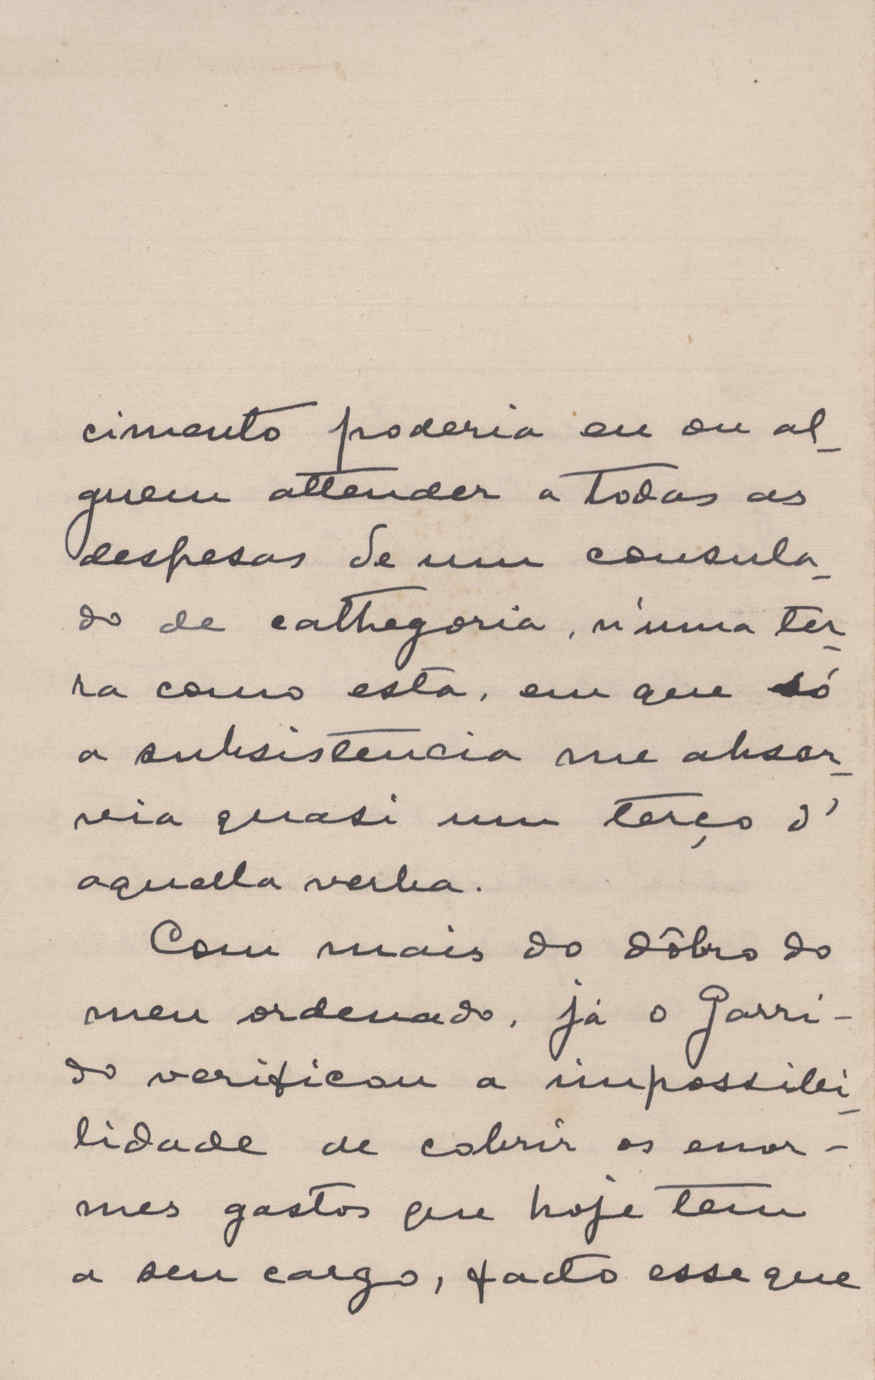 cimento poderia eu ou al-
guem attender a todas as
despesas de um consula-
do de cathegoria, n'uma ter-
ra como esta, em que só
a subsistencia me absor-
via quasi um terço d'
aquella verba.
Com mais do dôbro do
meu ordenado, já o Garri-
do verificou a impossibi-
lidade de cobrir os enor-
mes gastos que hoje tem
a seu cargo, facto esse que